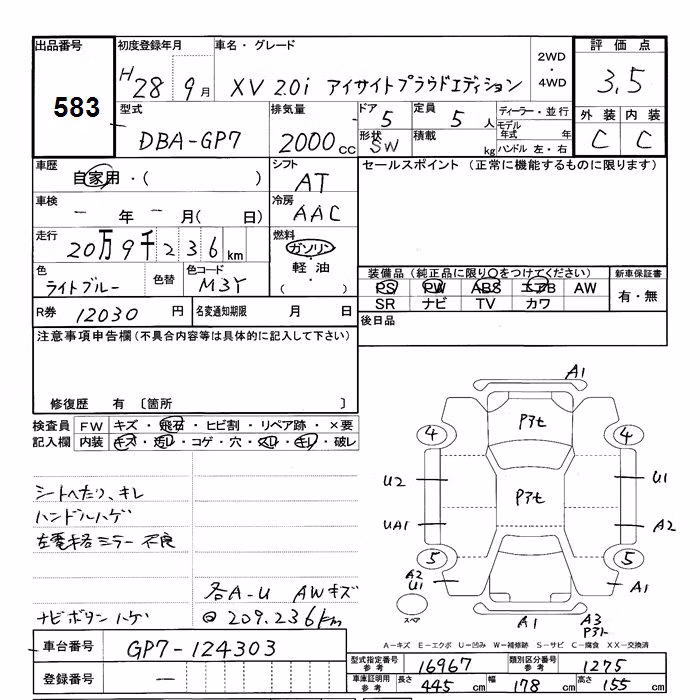 出品番号 初度登録年月 車名・グレード 2WD・4WD 評価点
583 H28 9月 XV 2.0i アイサイトプラウドエディション 3.5
型式 排気量 ドア 定員 ディーラー・並行 外装 内装
DBA-GP7 2000cc 5 5人 モデル年式 年 C C
形状 SW 積載 kg ハンドル 左・右
車歴 シフト セールスポイント (正常に機能するものに限ります)
自家用・( ) AT
車検 冷房
ー 年 ー 月( 日) AAC
走行 燃料
20万9千236km ガソリン・軽油・( )
色 色替 色コード 装備品 (純正品に限り○をつけてください) 新車保証書
ライトブルー M3Y PS PW ABS エアB AW 有・無
SR ナビ TV カワ
R券 12030円 名変通知期限 月 日 後日品
注意事項申告欄(不具合内容等は具体的に記入して下さい)
修復歴 有 〔箇所 〕
検査員 FW キズ・飛石・ヒビ割・リペア跡・×要
記入欄 内装 キズ・汚レ・コゲ・穴・スレ・キレ・破レ
シートへたり、キレ
ハンドルハゲ
左電格ミラー不良
各A-U AWキズ
ナビボタンハゲ ◎209.236km
A1
P3t
4 4
U2 U1
P3t
UA1 A2
5 5
A2
U1 A1
スペア A1 A3
A-キズ E-エクボ U-凹み W-補修跡 S-サビ C-腐食 XX-交換済
車台番号 GP7-124303
型式指定番号 参考 16967 類別区分番号 参考 1275
登録番号 ー
車庫証明用 参考 長さ 445cm 幅 178cm 高さ 155cm